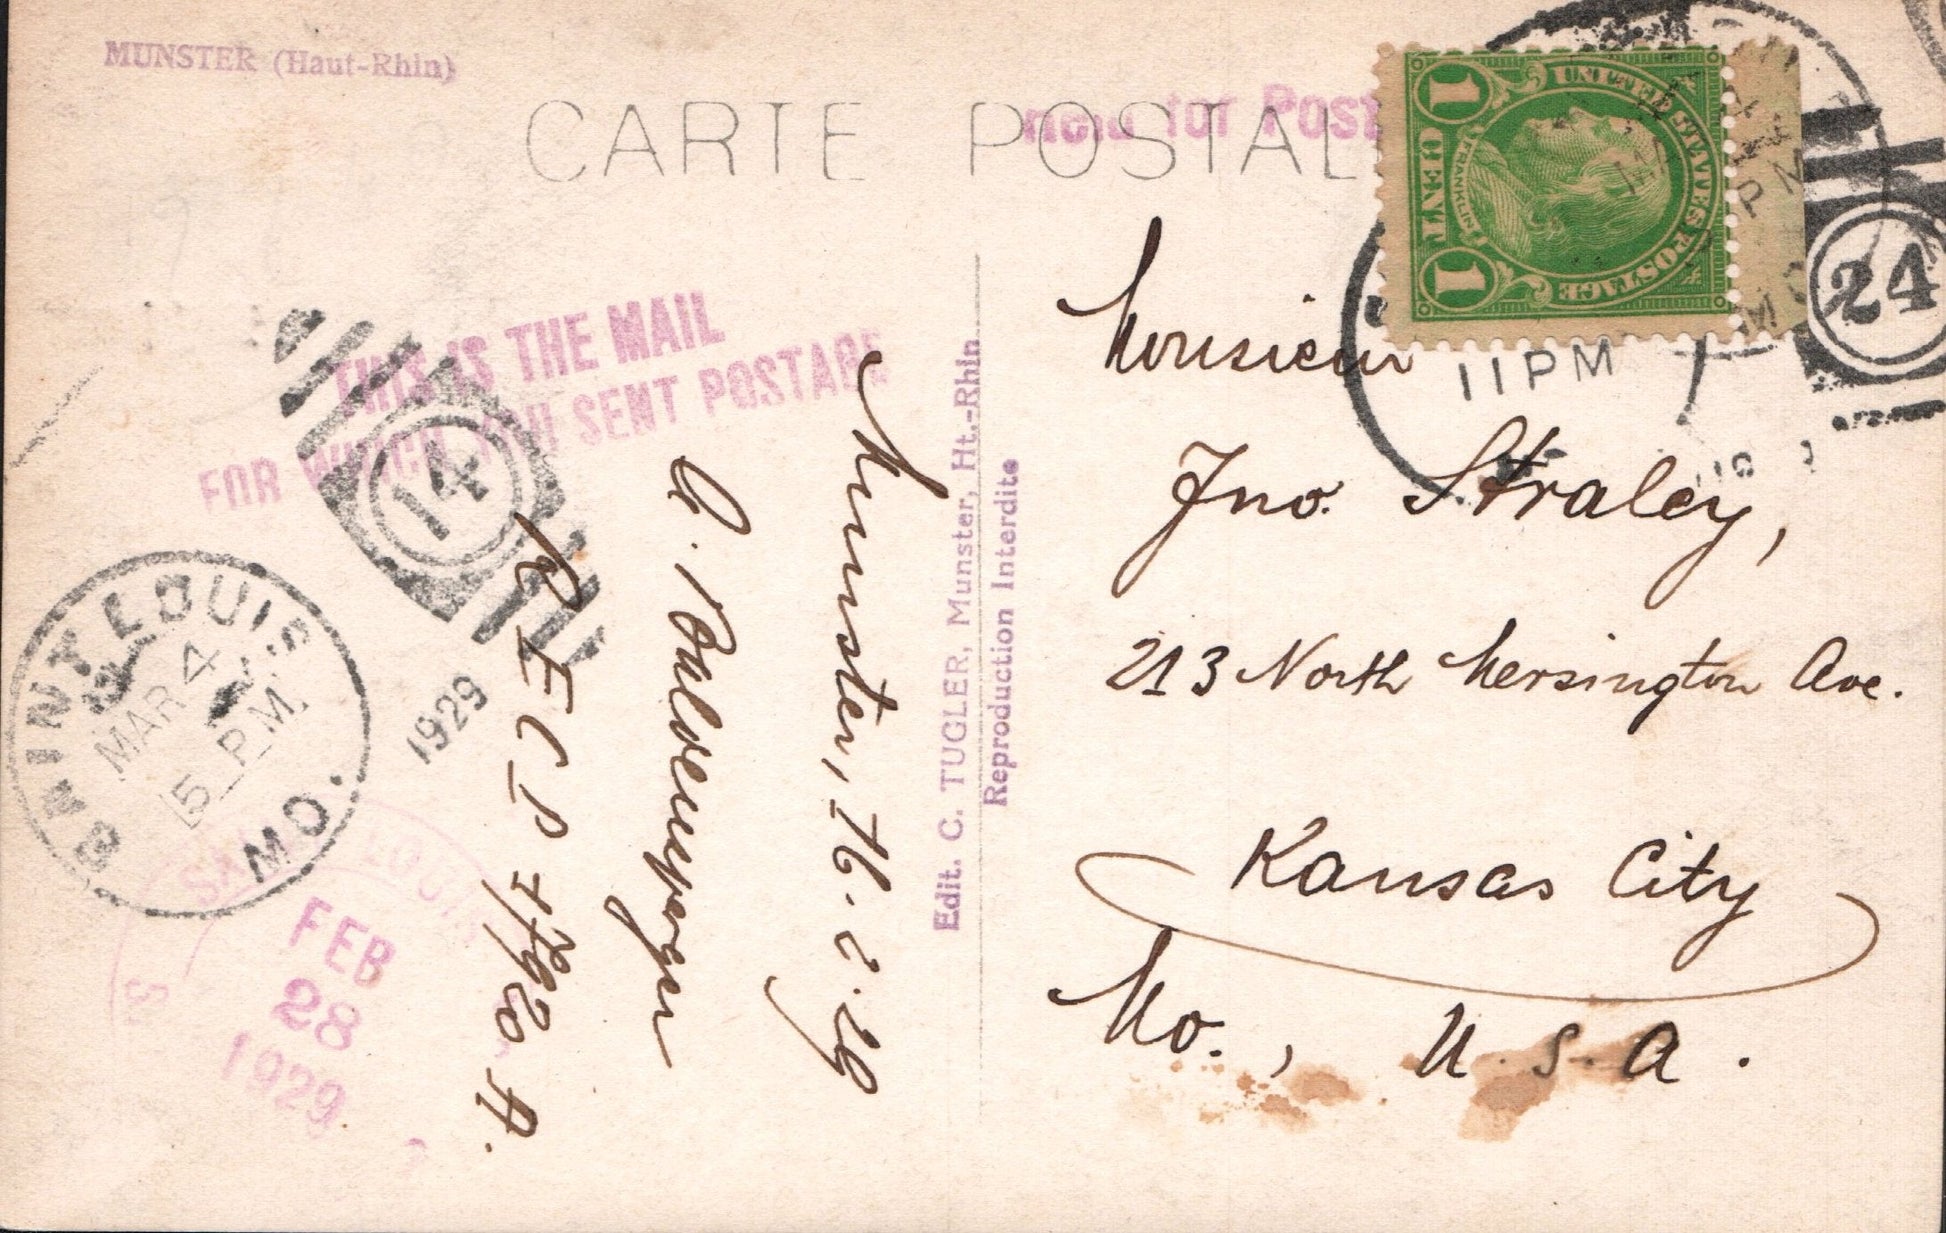 MUNSTER (Haut-Rhin)
CARTE POSTAL
Held for Post
THIS IS THE MAIL
FOR WHICH YOU SENT POSTAGE
14
SAINT LOUIS
MAR 4
5 PM.
MO.
1929
FEB
28
1929
Munster, 16.2.29
R E C P
Edit. C. TUGLER, Munster, Ht.-Rhin
Reproduction Interdite
UNITED STATES POSTAGE
FRANKLIN
1 CENT 1
11 PM
24
Monsieur
Jno. Straley,
213 North Mersington Ave.
Kansas City
Mo., U.S.A.